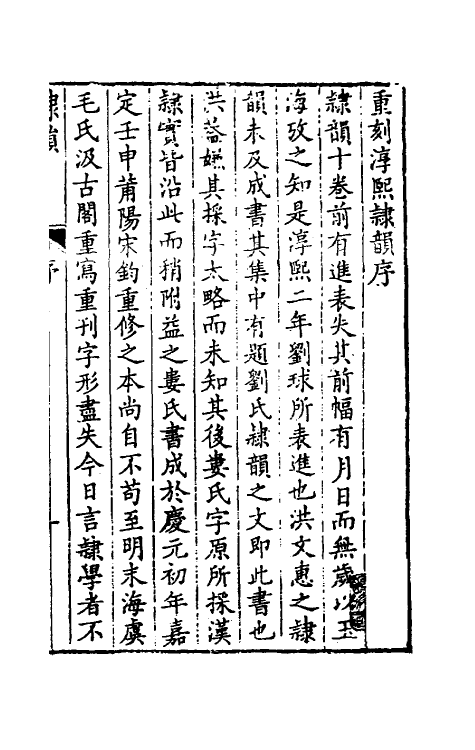 重刻淳熙隸韻序
隸韻十卷前有進表失其前幅有月日而無歲以玉
海攷之知是淳熙二年劉球所表進也洪文惠之隸
韻未及成書其集中有題劉氏隸韻之文即此書也
洪蓋嫌其採字太略而未知其後婁氏字原所採漢
隸實皆沿此而稍附益之婁氏書成於慶元初年嘉
定壬申莆陽宋鈞重修之本尚自不苟至明末海虞
毛氏汲古閣重寫重刊字形盡失今日言隸學者不
隸韻
序